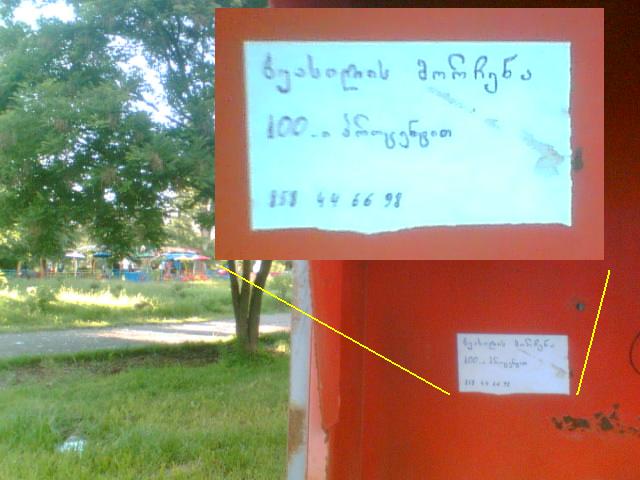 ბუასილის მორჩენა
100-ი პროცენტით
858 44 66 98